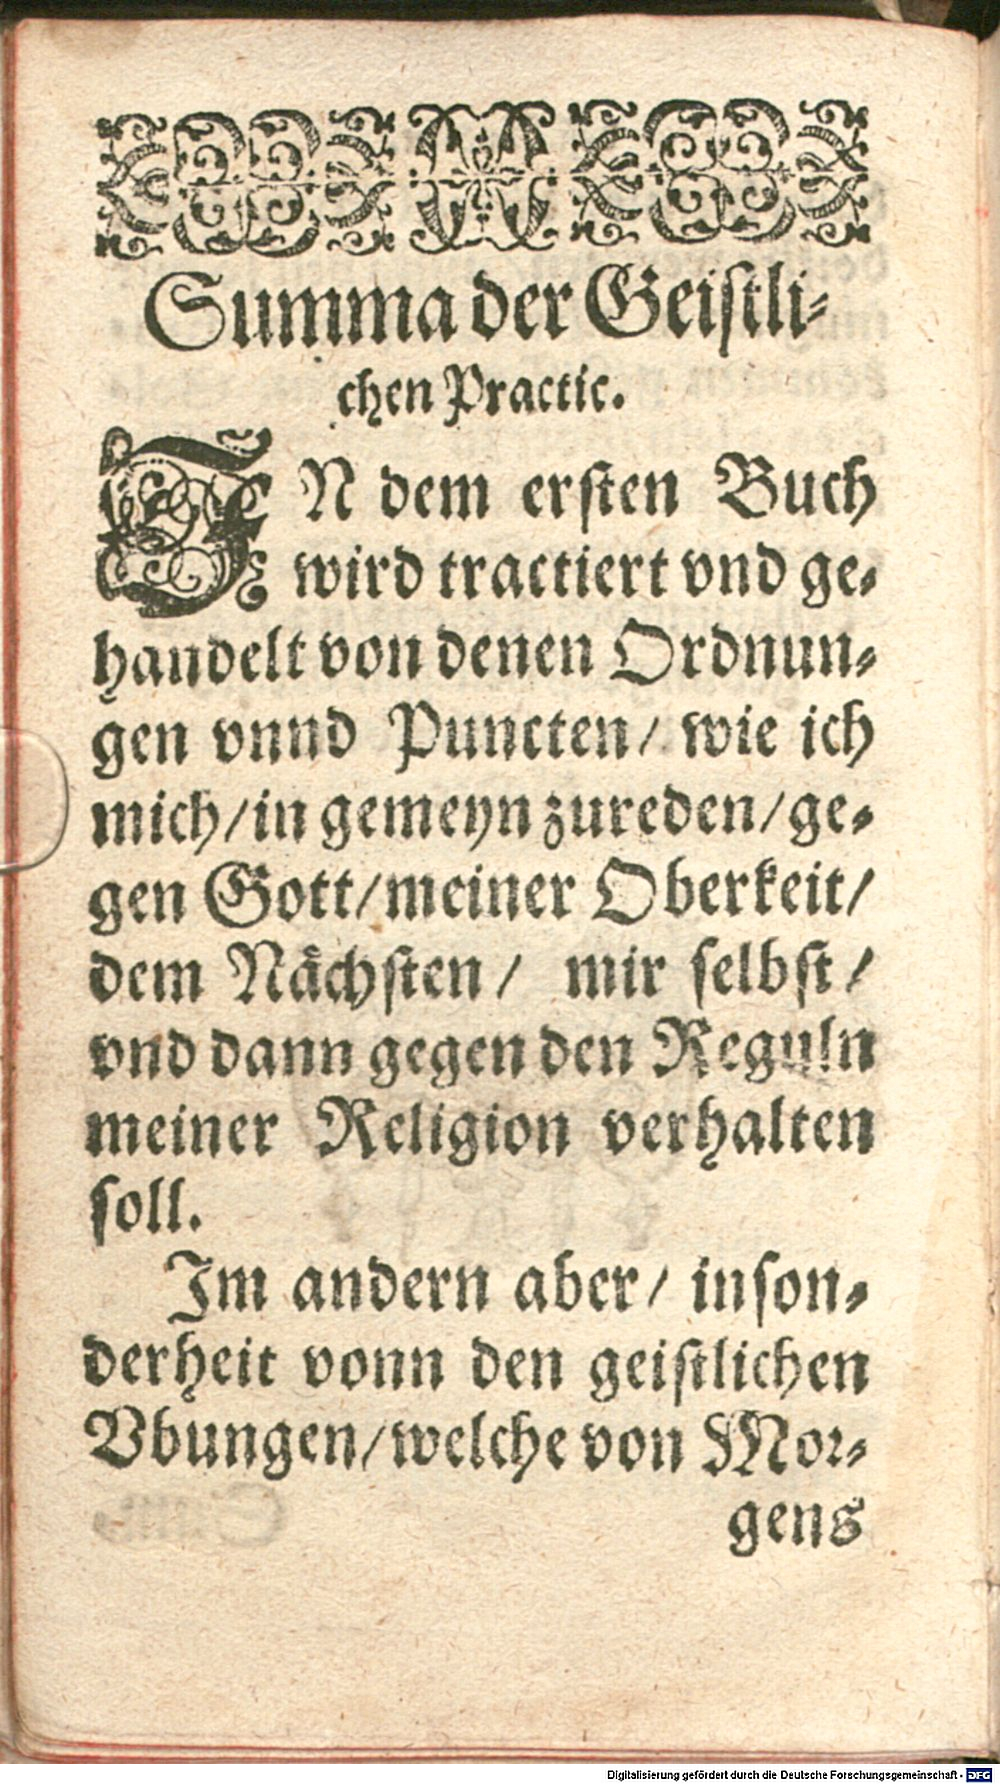 Summa der Geiſtli⸗
chen Practic.
IN dem erſten Buch
wird tractiert vnd ge⸗
handelt von denen Ordnun⸗
gen vnnd Puncten/ wie ich
mich/in gemeyn zureden/ge⸗
gen Gott/meiner Oberkeit/
dem Nächſten/ mir ſelbſt/
vnd dann gegen den Reguln
meiner Religion verhalten
ſoll.
Im andern aber/ inſon⸗
derheit vonn den geiſtlichen
Vbungen/welche von Mor⸗
gens
Digitalisierung gefördert durch die Deutsche Forschungsgemeinschaft - DFG